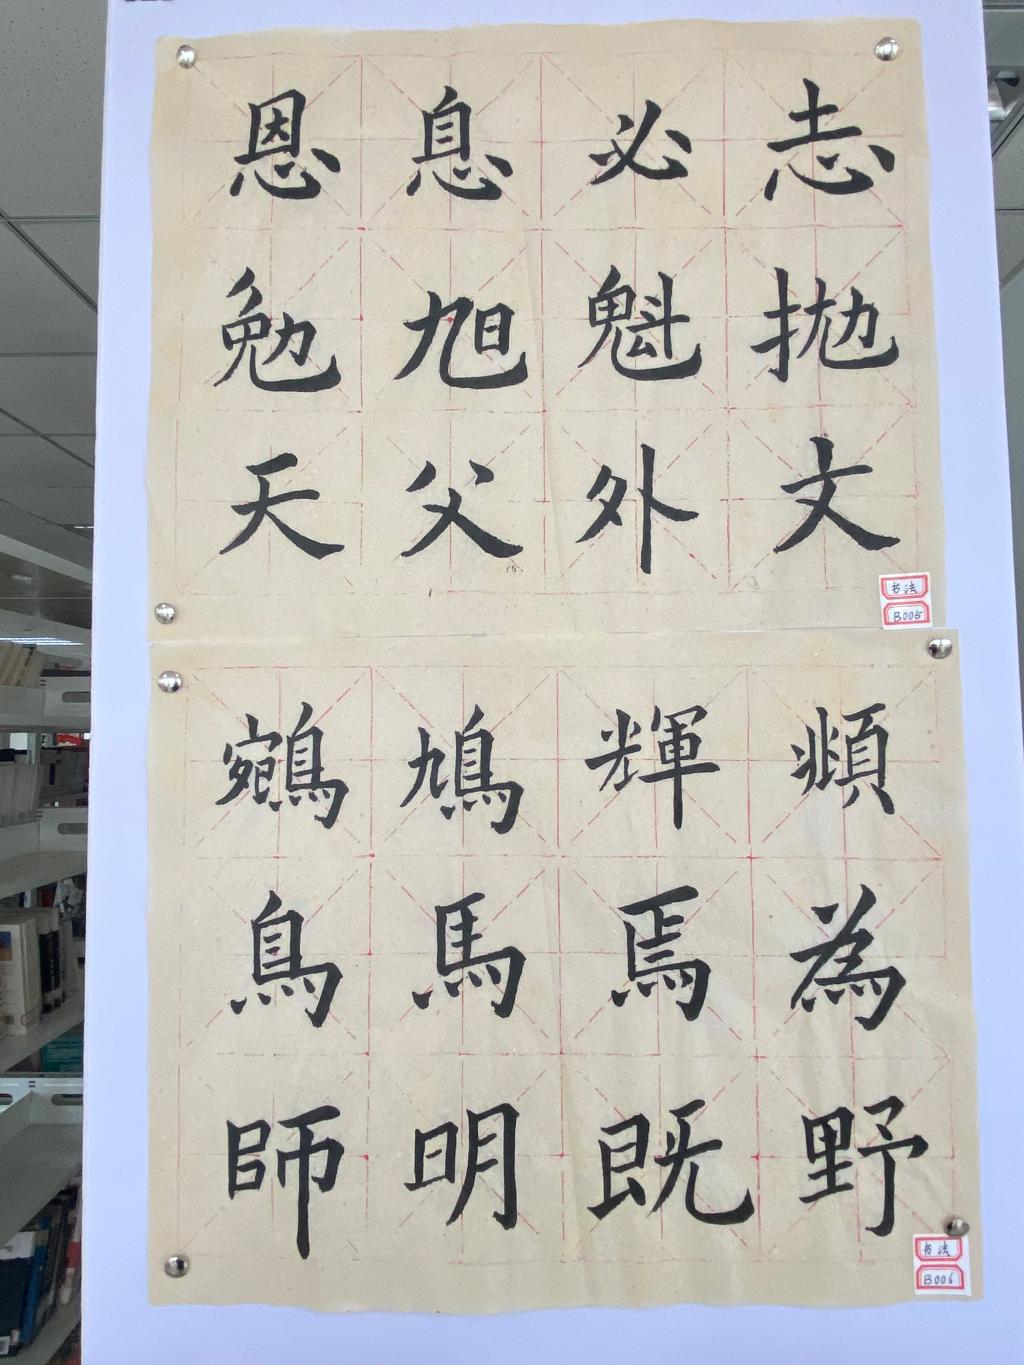 恩息必志
勉旭魁拋
天父外文
书法
B005
鵷鳩輝頫
鳥馬焉為
師明既野
书法
B006